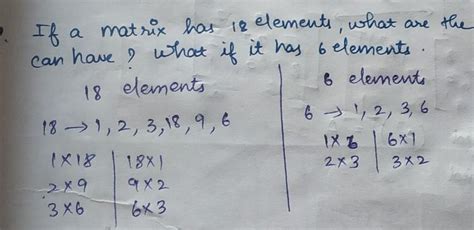 If a matrix has 18 elements, what are the
can have? What if it has 6 elements.
18 elements
18 → 1, 2, 3, 18, 9, 6
1 × 18 | 18 × 1
2 × 9 | 9 × 2
3 × 6 | 6 × 3
6 elements
6 → 1, 2, 3, 6
1 × 6 | 6 × 1
2 × 3 | 3 × 2